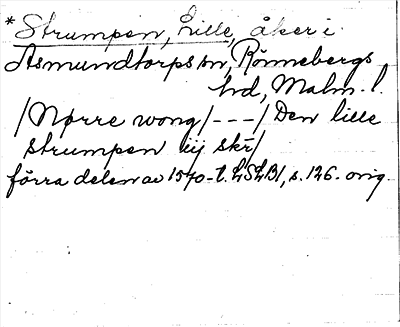 *Strumpen, Lille, åker i
Asmundtorps sn, Rönnebergs
hd, Malm. l.
/Nørre wong/ --- / Den lille
strumpen iij skr/
förra delen av 1570-t. LSLB1, s. 126. orig.